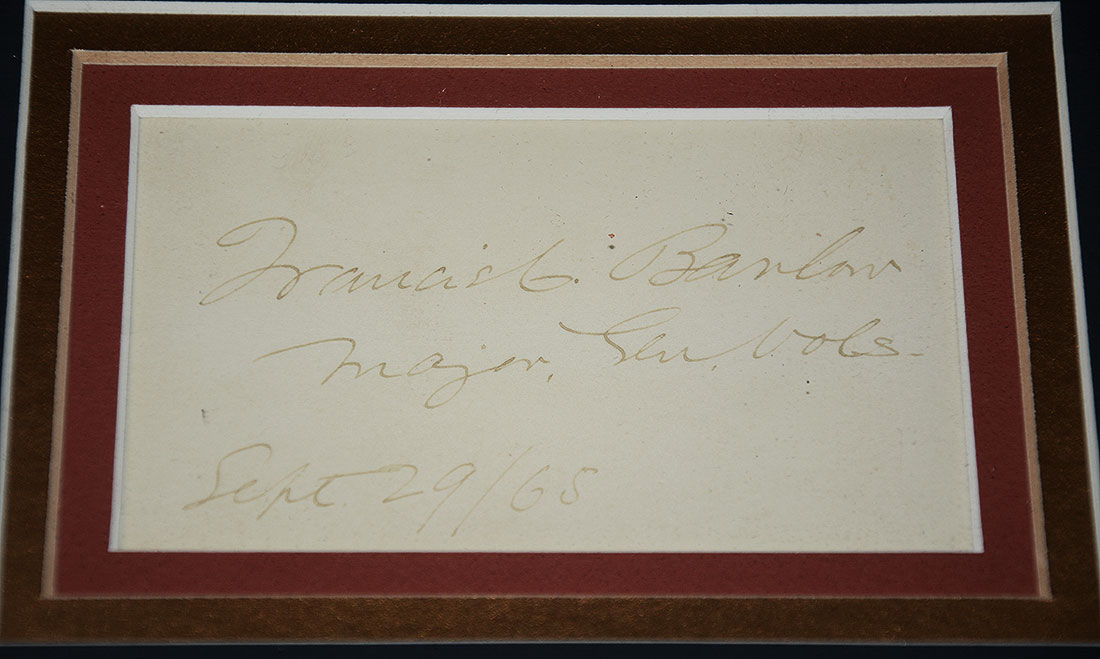 Francis C. Barlow
Major. Gen. Vols.
Sept 29/65